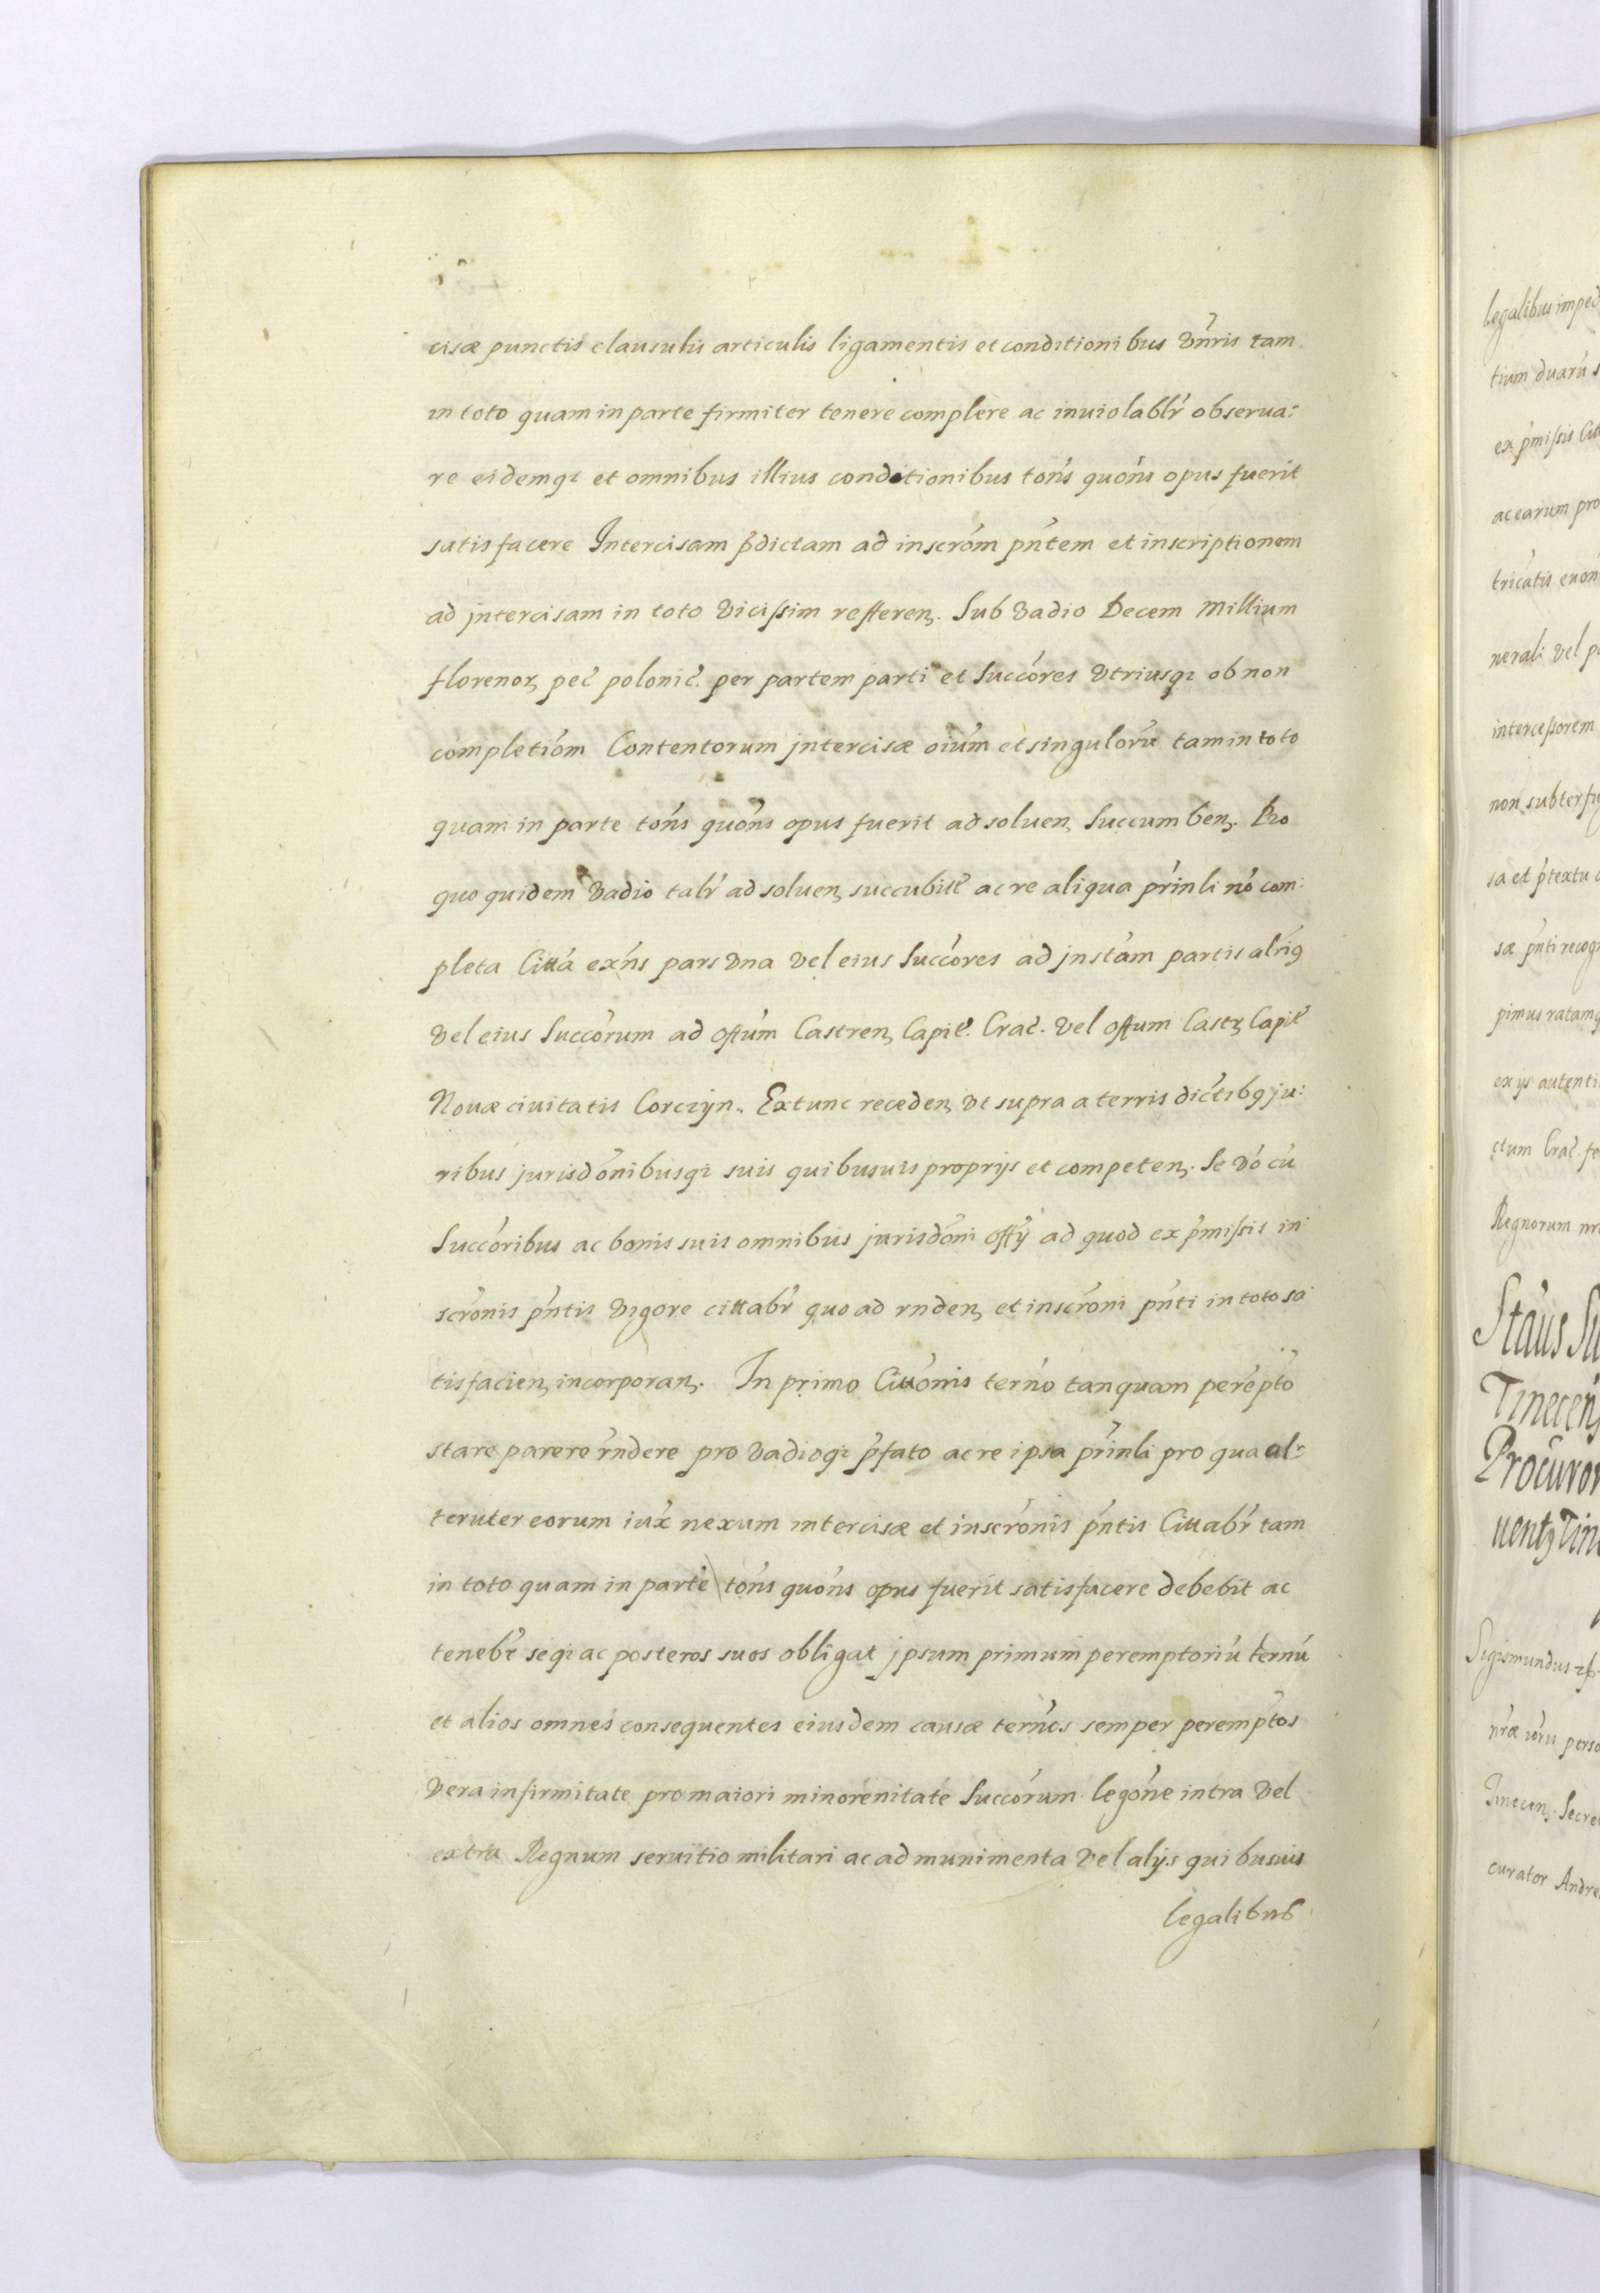 cisæ punctis clausulis articulis ligamentis et conditionibus vnr̃is tam
in toto quam in parte firmiter tenere complere ac inuiolablr̃ obserua:
re eidemqȝ et omnibus illius conditionibus ton̄s quon̄s opus fuerit
satisfacere Intercisam p̃dictam ad inscrōm pn̄tem et inscriptionem
ad jntercisam in toto vicissim refferenȝ. Sub vadio Decem Millium
florenorȝ pec̃ polonic̃. per partem parti et Succōres vtriusqȝ ob non
completiōm Contentorum jntercisæ oiūm et singulorū tam in toto
quam in parte ton̄s quon̄s opus fuerit ad soluenȝ Succumbenȝ. Pro
quo quidem vadio talr̃ ad soluenȝ succubit̃ ac re aliqua prīnli nō com:
pleta Citta exn̄s pars vna vel eius Succōres ad jnstām partis altr̃iȝ
vel eius Succōrum ad offūm Castrenȝ Capit̃. Crac̃. vel offum Castrȝ Capit̃
Nouæ ciuitatis Corczyn. Extunc recedenȝ vt supra a terris dict̃ibȝ ju:
ribus jurisdōnibusqȝ suis quibusuis proprijs et competenȝ. Se vō cū
Succōribus ac bonis suis omnibus jurisdōni offỹ ad quod ex p̃missis in
scrōnis pn̄tis vigore cittabr̃ quo ad rndenȝ et inscrōni pn̄ti in toto sa
tisfacienȝ incorporanȝ. In primo Cittōnis tern̄o tanquam perēpt̄o
stare parere rn̄dere pro vadioqȝ p̃fato ac re ipsa prīnli pro qua al:
teruter eorum iux̃ nexum intercisæ et inscrōnis pn̄tis Cittabr̃ tam
in toto quam in parte ton̄s quon̄s opus fuerit satisfacere debebit ac
tenebr̃ seqȝ ac posteros suos obligat jpsum primum peremptoriū ternū
et alios omnes consequentes eiusdem causæ tern̄os semper perempt̄os
vera infirmitate pro maiori minorēnitate Succōrum legōne intra vel
extra Regnum seruitio militari ac ad munimenta vel alijs quibusuis
legalibus
legalibus imped
tium duarū s
ex p̃missis Citt
ac earum pro
nerali vel p
intercessorem
non subterfu
sa et p̃textu
sæ pn̄ti recog
pimus ratamq
ex ijs autenti
ctum Crac̃. fe
Regnorum nr
Stāus Su
Tinecenȝ
Procuror
uentȝ Tin
Sigismundus
nr̃æ
Tinecenȝ. Secre
curator Andre